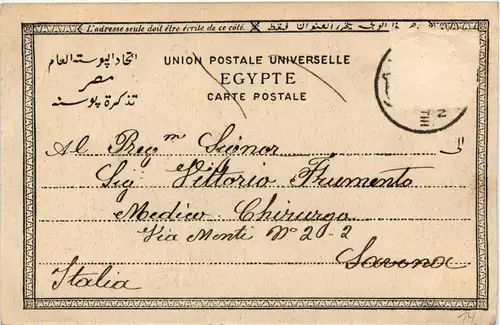 L'adresse seule doit être écrite de ce côté.
اتحاد البوسته العام
مصر
تذكرة بوسته
UNION POSTALE UNIVERSELLE
EGYPTE
CARTE POSTALE
الى
Al Preg.m Signor
Sig Vittorio Frumento
Medico Chirurgo
Via Monti N° 2-2
Savona
Italia